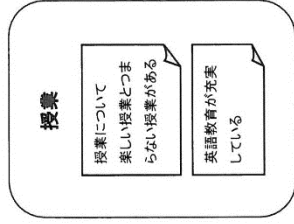 授業
授業について
楽しい授業とつま
らない授業がある
英語教育が充実
している